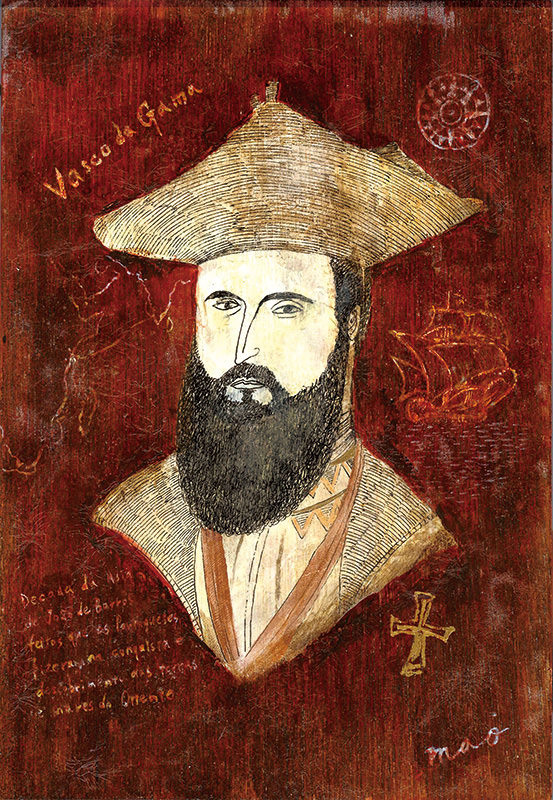 Vasco da Gama
Decada da Asia
de João de Barro
feitos que os Portugueses
fizeram na conquista e
descobrimento das terras
e mares do Oriente
mao